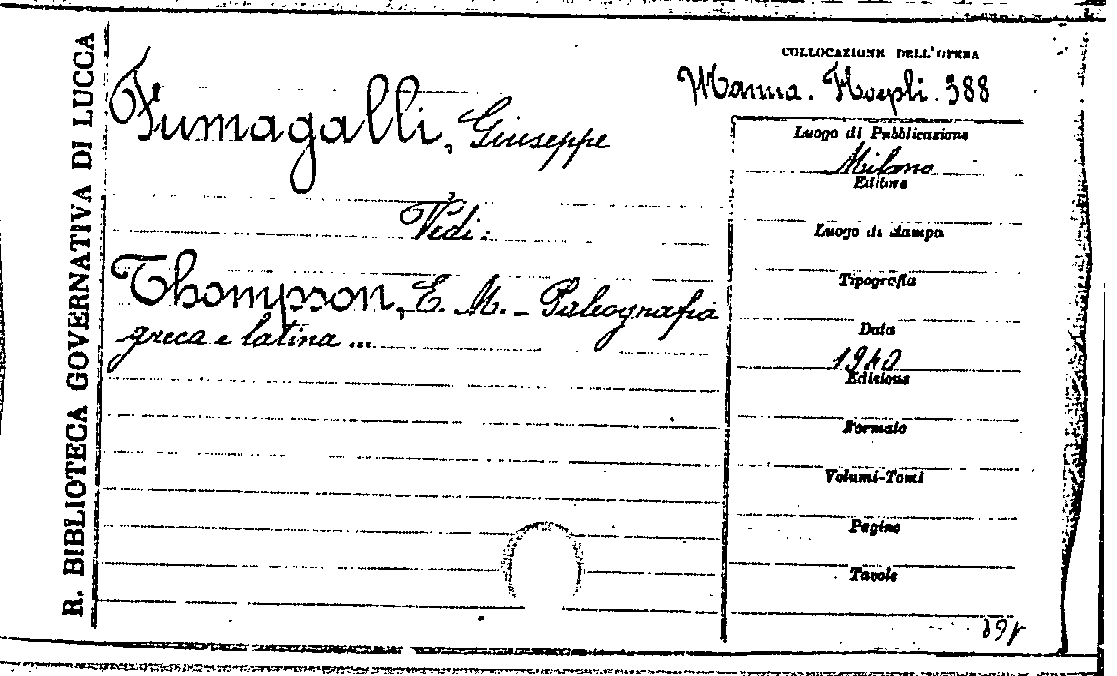 R. BIBLIOTECA GOVERNATIVA DI LUCCA
COLLOCAZIONE DELL'OPERA
Manua. Hoepli. 388
Fumagalli, Giuseppe
Vedi:
Thompson, E. M. - Paleografia
greca e latina ...
Luogo di Pubblicazione
Milano
Editore
Luogo di stampa
Tipografia
Data
1940
Edizione
Formato
Volumi-Tomi
Pagine
Tavole